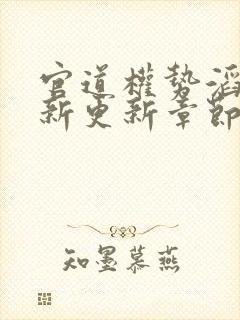 官道權勢滔
新更新章節
知墨慕燕